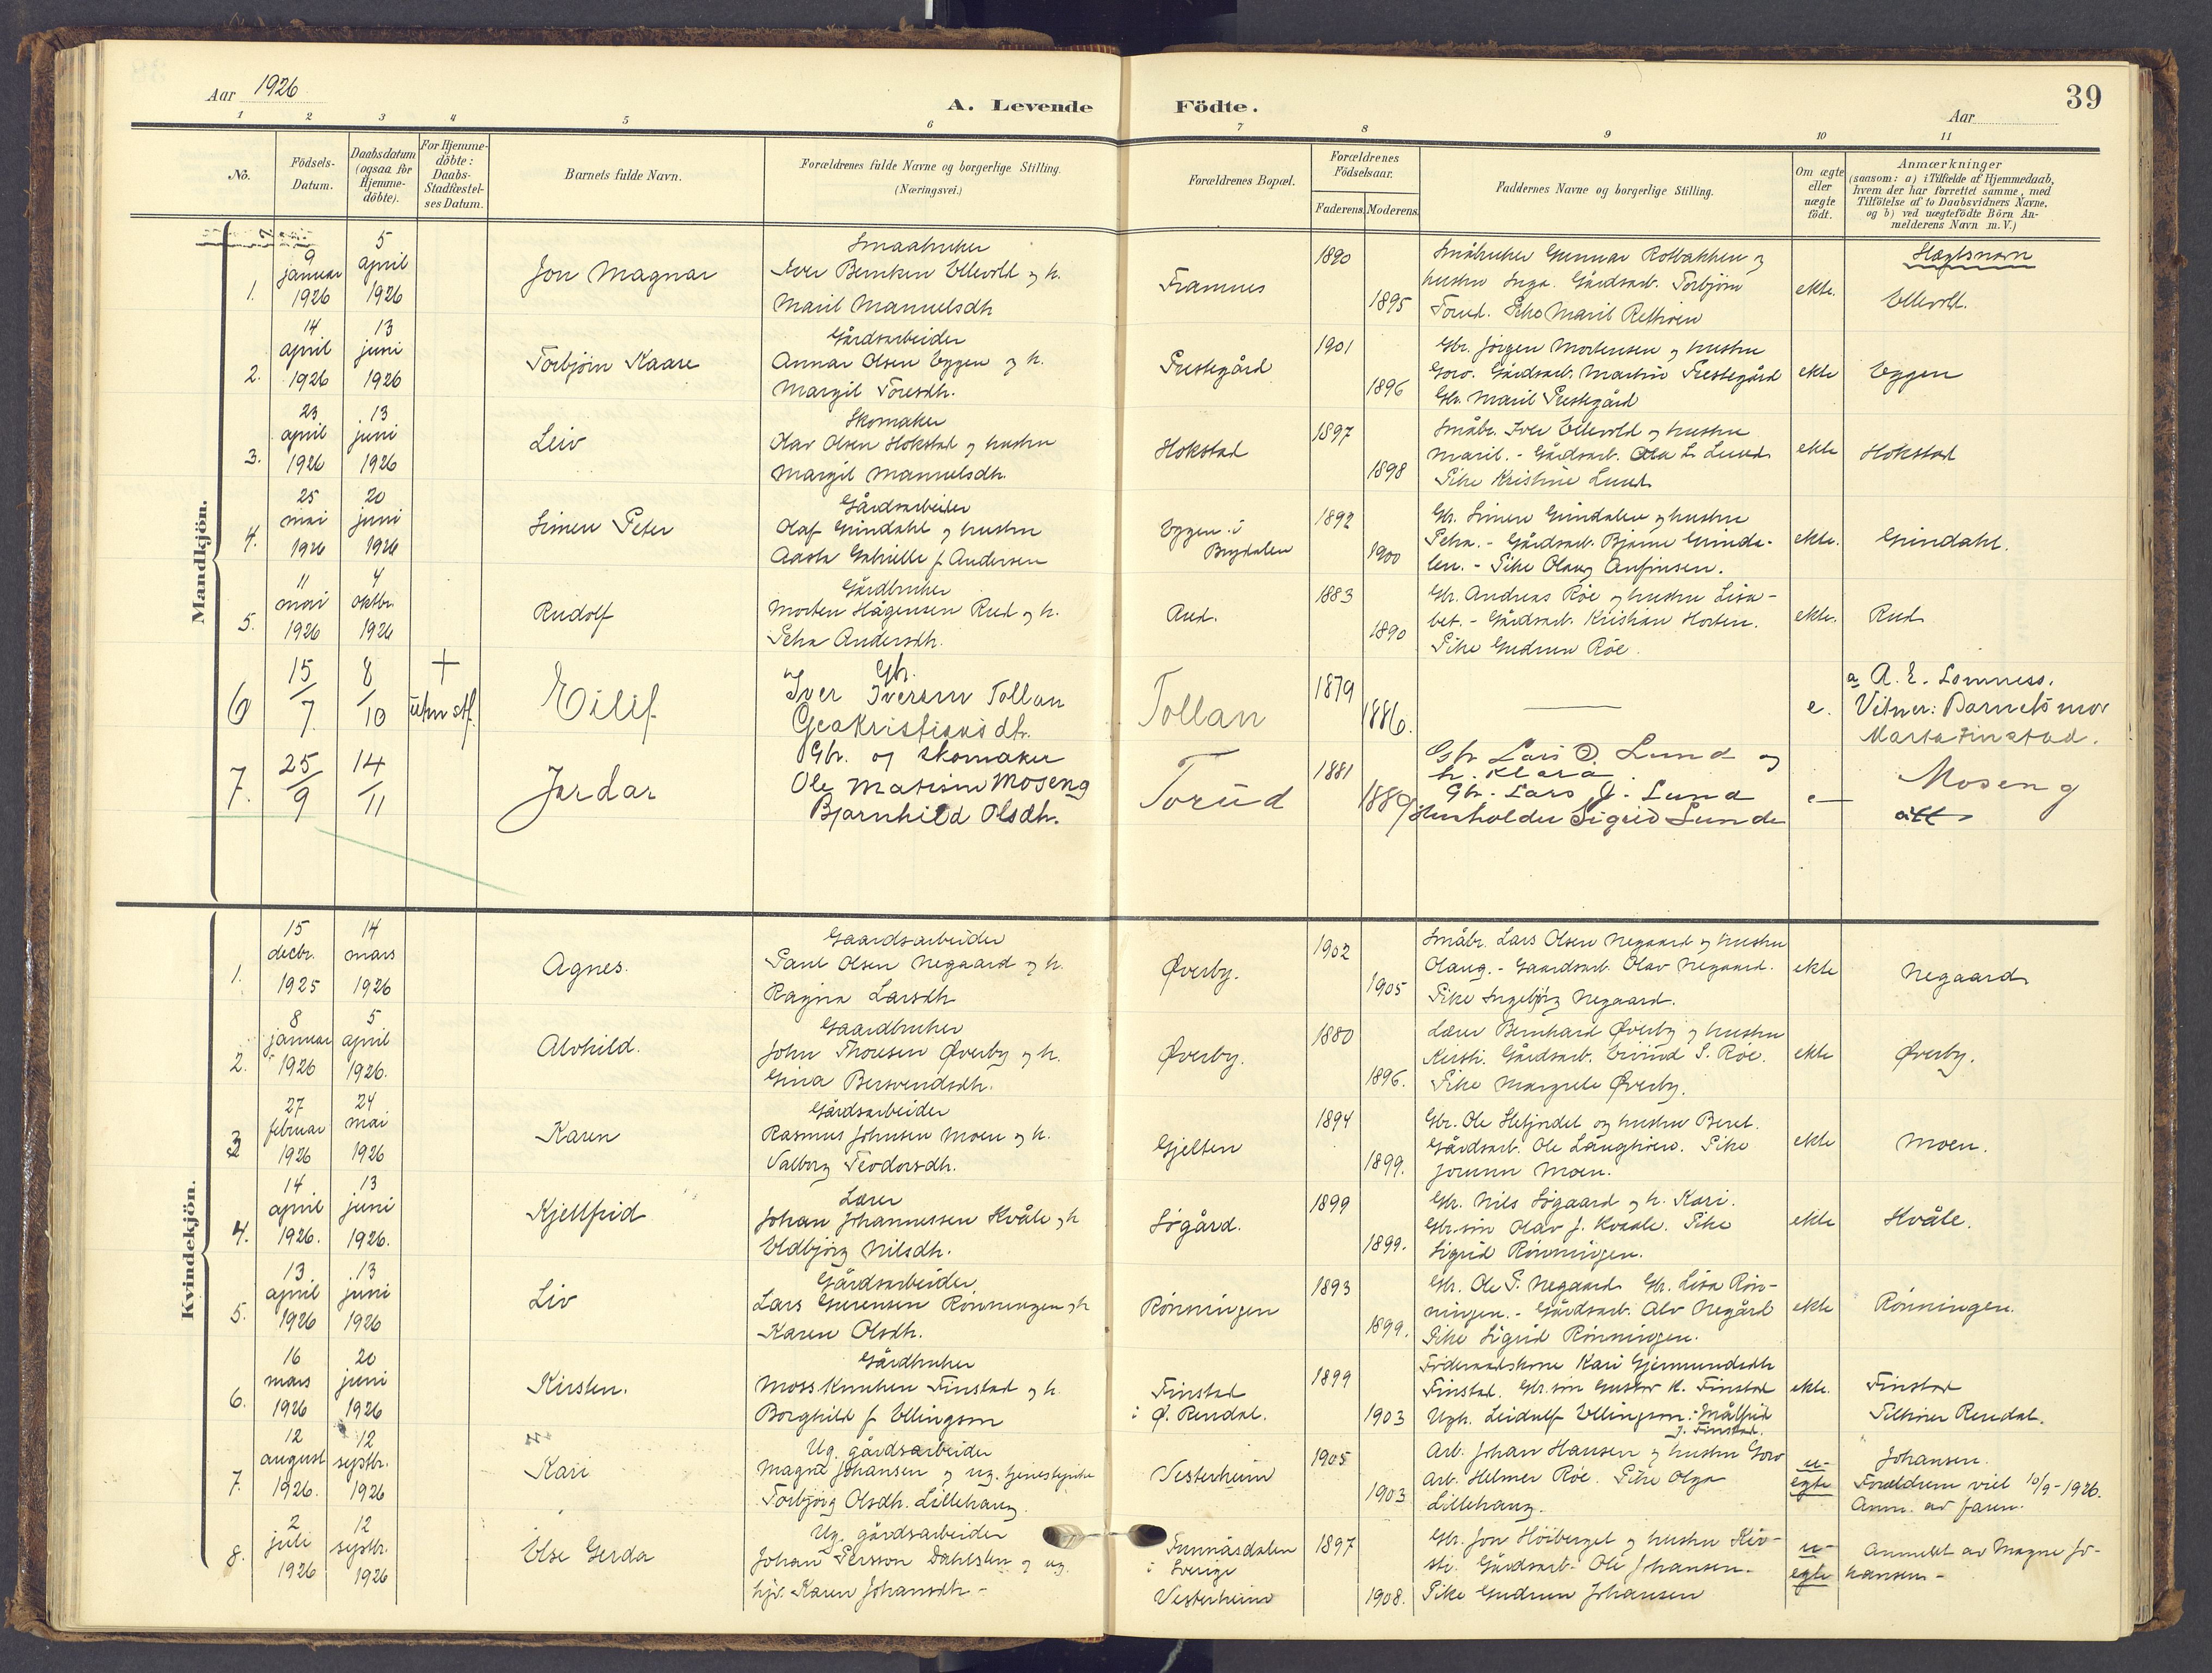 Aar 1926
A. Levende Födte.
Aar
39
1 2 3 4 5 6 7 8 9 10 11
No.
Födsels-
Datum.
Daabsdatum
(ogsaa for
Hjemme-
döbte).
For Hjemme-
döbte:
Daabs-
Stadfæstel-
ses Datum.
Barnets fulde Navn.
Forældrenes fulde Navne og borgerlige Stilling.
(Næringsvei.)
Forældrenes Bopæl.
Forældrenes
Födselsaar.
Faderens. Moderens.
Faddernes Navne og borgerlige Stilling.
Om ægte
eller
uægte
födt.
Anmærkninger
(saasom: a) i Tilfælde af Hjemmedaab,
hvem der har forrettet samme, med
Tilföielse af to Daabsvidners Navne,
og b) ved uægtefödte Börn An-
melderens Navn m. V.)
Mandkjön.
1.
9
januar
1926
5
april
1926
Jon Magnar
Smaabruker
Iver Berntsen Ellevold og h.
Marit Manuelsdh
Framnes
1890
1895
Småbruker Gunnar Rotbakken og
hustru Inga. Gårdsarb. Torbjörn
Torud. Pike Marit
ekte.
Slægtsnavn
Ellevoll.
2.
14
april
1926
13
juni
1926
Torbjörn Kaare
Gårdsarbeider
Annar Olsen Eggen og h.
Margit Toresdh.
Prestegård
1901
1896
Gbr. Jörgen Mortensen og hustru
Goro. Gårdsarb. Martin Prestegård
Gbr. Marit Prestegård
ekte
Eggen
3.
23
april
1926
13
juni
1926
Leiv
Skomaker
Olav Olsen Hokstad og hustru
Margit Manuelsdh.
Hokstad
1897
1898
Småbr. Iver Ellevold og hustru
Marit. - Gårdsarb. Ola L. Lund
Pike Kristine Lund
ekte
Hokstad
4.
25
mai
1926
20
juni
1926
Simen Peter
Gårdsarbeider
Olaf Grindahl og hustru
Aasta Gabrielle f. Andersen
Eggen i
Brydalen
1892
1900
Gbr. Simen Grindalen og hustru
Petra. - Gårdsarb. Bjarne Grinda-
len. - Pike Olaug Anfinsen.
ekte.
Grindahl.
5.
11
mai
1926
4
oktbr.
1926
Rudolf
Gårdbruker
Morten Hågensen Rud og h.
Petra Andersdh.
Rud.
1883
1890
Gbr. Andreas Röe og hustru Lisa-
bet. - Gårdsarb. Kristian Horten.
Pike Gudrun Röe.
ekte.
Rud
6
15/7
8/10
+
uten stf.
Eilif
Gbr.
Iver Iversen Tollan
Gea Kristiansdtr.
Tollan
1879
1886.
e.
a A. E. Lomness.
Vitner: Barnets mor
Marta Finstad.
7.
25/9
14/11
Jardar
Gbr. og skomaker
Ole Matisen Moseng
Bjarnhild Olsdh.
Torud
1881
1889
Gbr Lars O. Lund og
h. Klara
Gbr. Lars J. Lund
Husholder Sigrid Lunde
e
Moseng
ått
Kvindekjön.
1.
15
decbr.
1925
14
mars
1926
Agnes.
Gaardsarbeider
Paul Olsen Negaard og h.
Ragna Larsdh
Øverby.
1902
1905
Småbr. Lars Olsen Negaard og hustru
Olaug. - Gaardsarb. Olav Negaard.
Pike Ingebjörg Negaard.
ekte
Negaard
2.
8
januar
1926
5
april
1926.
Alvhild.
Gaardbruker
John Thoresen Øverby og h.
Gina Bersvendsdh.
Øverby.
1880
1896.
Lærer Bernhard Øverby og hustru
Kirsti. Gårdsarb. Eivind S. Röe.
Pike Margrete Øverby.
ekte
Øverby.
3
27
februar
1926
24
mai
1926
Karen
Gårdsarbeider
Rasmus Johnsen Moen og h.
Valborg Teodorsdh.
Gjelten
1894
1899.
Gbr. Ole Hefjndel og hustru Beret.
Gårdsarb. Ole Langhöien. Pike
Jorunn Moen.
ekte
Moen.
4.
14
april
1926.
13
juni
1926.
Kjellfrid
Lærer
Johan Johannessen Kvåle og h
Eldbjörg Nilsdh.
Søgård.
1899
1899.
Gbr. Nils Søgaard og h. Kari.
Gbr.sön Olav J. Kvaale. Pike
Sigrid Rönningen.
ekte
Kvåle.
5.
13
april
1926
13
juni
1926
Liv
Gårdsarbeider
Lars Gurensen Rönningen og h
Karen Olsdh.
Rönningen
1893
1899.
Gbr. Ole P. Negaard. Gbr. Lisa Rön-
ningen. - Gårdsarb. Alv Negård
Pike Sigrid Rönningen.
ekte
Rönningen.
6.
16
mars
1926
20
juni
1926
Kirsten.
Gårdbruker
Moss. Knutsen Finstad og h.
Borghild f. Ellingsen
Finstad
i Ø. Rendal.
1899
1903
Föderaadskone Kari Gjermundsdh
Finstad. Gbr. sön Gustav K. Finstad
Ugk. Leidulf Ellingson. - Målfrid
J. Finstad.
ekte.
Finstad
Tilhörer Rendal.
7.
12
august
1926.
12
septbr.
1926
Kari
Ug. gårdsarbeider
Magne Johansen og ug. tjenestepike
Torbjörg Olsdh. Lillehaug
Vesterheim
1905
1903
Arb. Johan Hansen og hustru Goro
Arb. Helmer Röe. Pike Olga
Lillehaug.
u-
egte
Johansen.
Foreldrene viet 10/9-1926.
Anm. av faren.
8.
2
juli
1926
12
septbr.
1926
Else Gerda
Ug. gårdsarbeider
Johan Persson Dahlsten og ug.
hjv. Karen Johansdh -
Funnäsdalen
i Sverige
Vesterheim
1897
1908.
Gbr. Jon Höiberget og hustru Kir-
sti. Gårdsarb. Ole Johansen.
Pike Gudrun Johansen
u-
egte
Anmeldt av Magne Jo-
hansen -